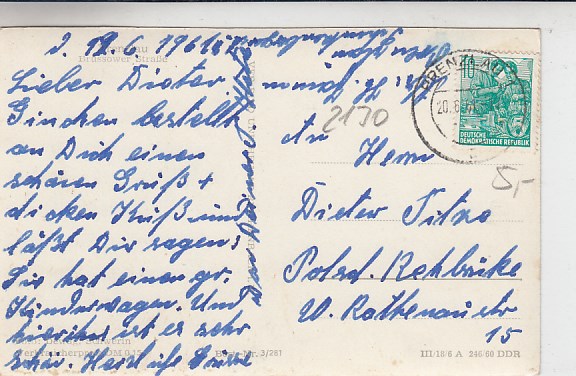 Prenzlau
Brüssower Straße
d. 19.6.1961
Lieber Dieter.
Ginchen bestellt
an Dich einen
schönen Gruß +
dicken Kuß und
läßt Dir sagen:
Sie hat einen gr.
Kinderwagen. Und
hierin ist es sehr
schön. Herzliche Grüße
Verbraucherpreis DM
Best.-Nr. 3/281
PRENZLAU
20.6.61
10
DEUTSCHE
DEMOKRATISCHE REPUBLIK
2130
5,-
An Herrn
Dieter Titze
Potsd. Rehbrücke
W. Rathenaustr
15
III/18/6 A 246/60 DDR